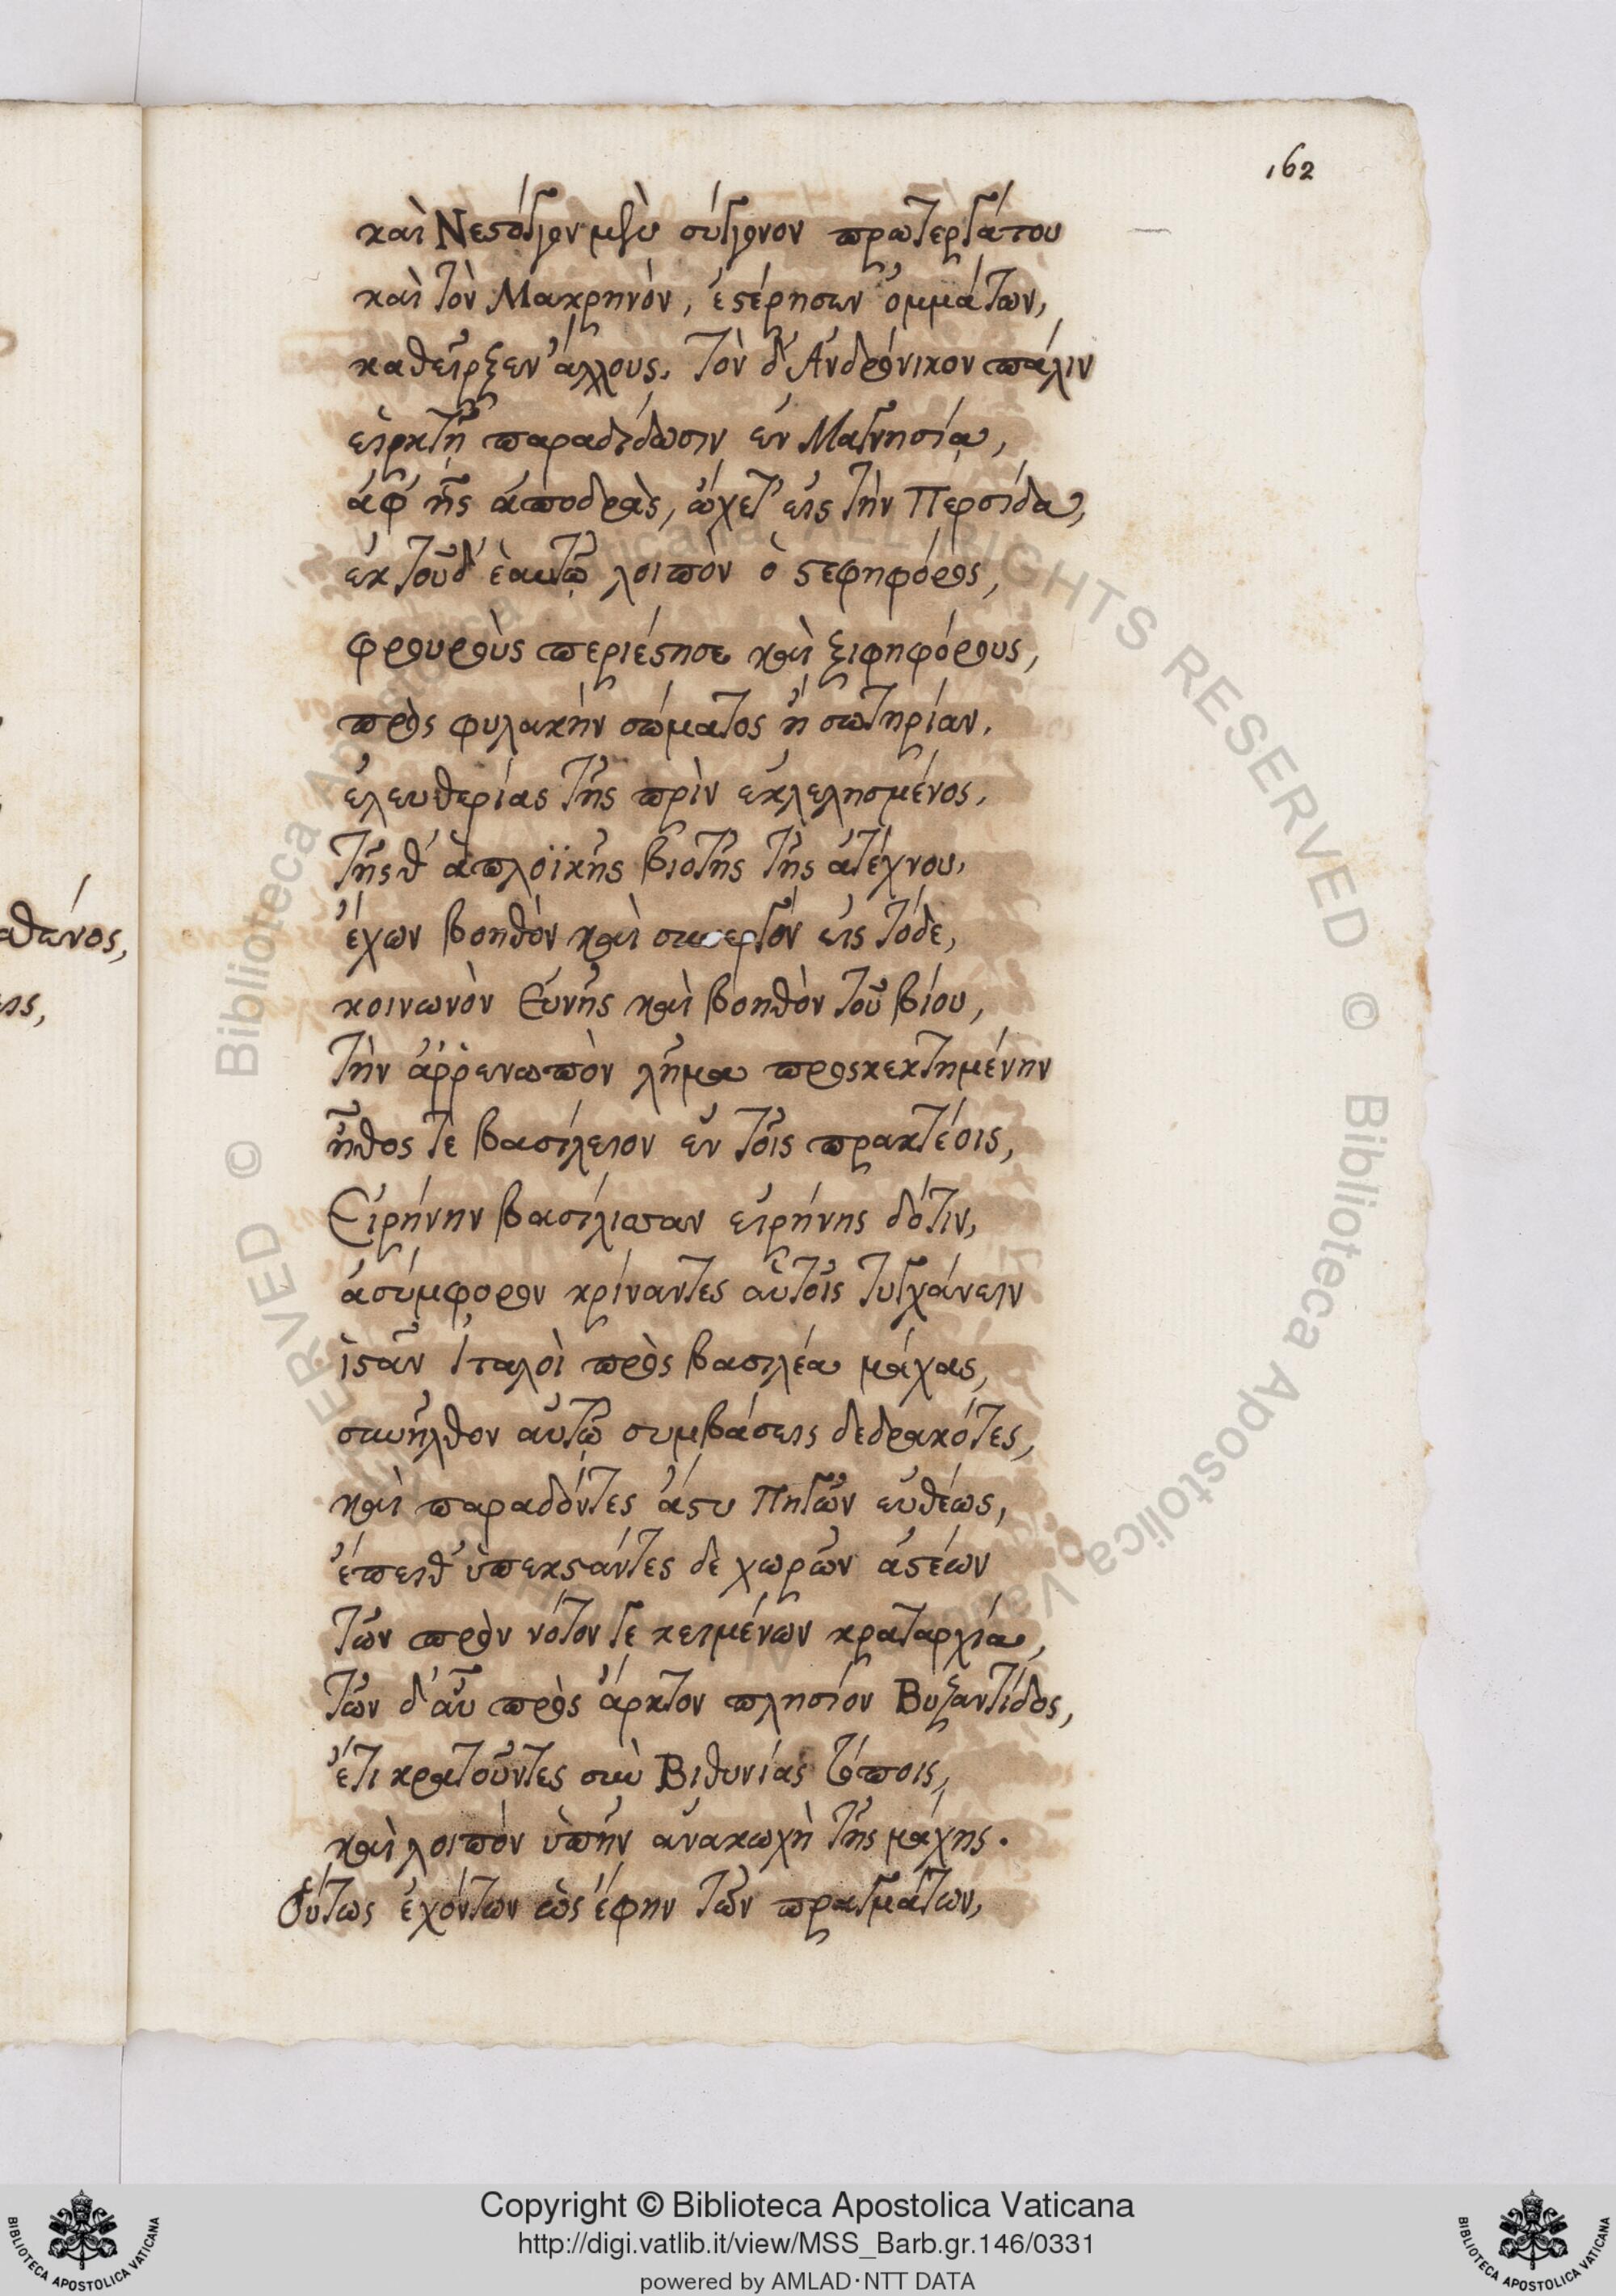 162
καὶ Νεστόγγον μὲν σύγγονον πρωτεργάτου
καὶ τὸν Μακρηνὸν, ἐστέρησεν ὀμμάτων,
καθεῖρξεν ἄλλους. τὸν δ' Ἀνδρόνικον πάλιν
εἱρκτῇ παραδίδωσιν ἐν Μαγνησίᾳ,
ἀφ' ἧς ἀποδρὰς, ᾤχετ' εἰς τὴν Περσίδα,
ἐκ τοῦδ' ἑαυτῷ λοιπὸν ὁ στεφηφόρος,
φρουροὺς περιέστησε καὶ ξιφηφόρους,
πρὸς φυλακὴν σώματος ἢ σωτηρίαν.
ἐλευθερίας τῆς πρὶν ἐκλελησμένος.
τῆς θ' ἁπλοϊκῆς βιοτῆς τῆς ἀτέχνου.
ἔχων βοηθὸν καὶ συνεργὸν εἰς τόδε,
κοινωνὸν εὐνῆς καὶ βοηθὸν τοῦ βίου,
τὴν ἀῤῥενωπὸν λῆμα προσκεκτημένην
ἦθος τε βασίλειον ἐν τοῖς πρακτέοις,
Εἰρήνην βασίλισσαν εἰρήνης δότιν,
ἀσύμφορον κρίναντες αὑτοῖς τυγχάνειν
ἱστᾶν Ἰταλοὶ πρὸς βασιλέα μάχας,
συνῆλθον αὐτῷ συμβάσεις δεδρακότες,
καὶ παραδόντες ἄστυ Πηγῶν εὐθέως,
ἔπειθ' ὑπεκστάντες δὲ χωρῶν ἀστέων
τῶν πρὸν νότον γε κειμένων κραταρχία,
τῶν δ' αὖ πρὸς ἄρκτον πλησίον Βυζαντίδος,
ἔτι κρατοῦντες σὺν Βιθυνίας τόποις,
καὶ λοιπὸν ὑπῆν ἀνακωχὴ τῆς μάχης.
Οὕτως ἐχόντων ὡς ἔφην τῶν πραγμάτων,
Copyright © Biblioteca Apostolica Vaticana
http://digi.vatlib.it/view/MSS_Barb.gr.146/0331
powered by AMLAD·NTT DATA